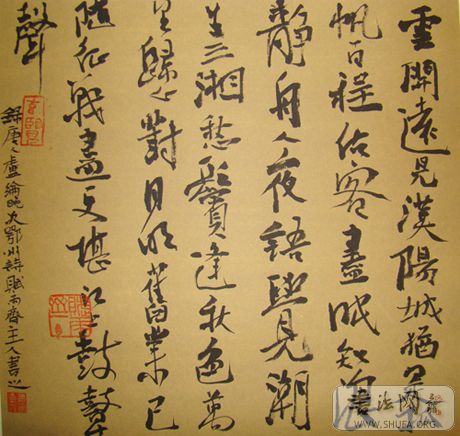 雲開遠見漢陽城猶是
帆一日程估客晝眠知浪
靜舟人夜語覺潮
生三湘愁鬢逢秋色萬
里歸心對月明舊業已
隨征戰盡更堪江上鼓鼙
聲
錄唐人盧綸晚次鄂州詩 齋主人書之
书法网
WWW.SHUFA.ORG